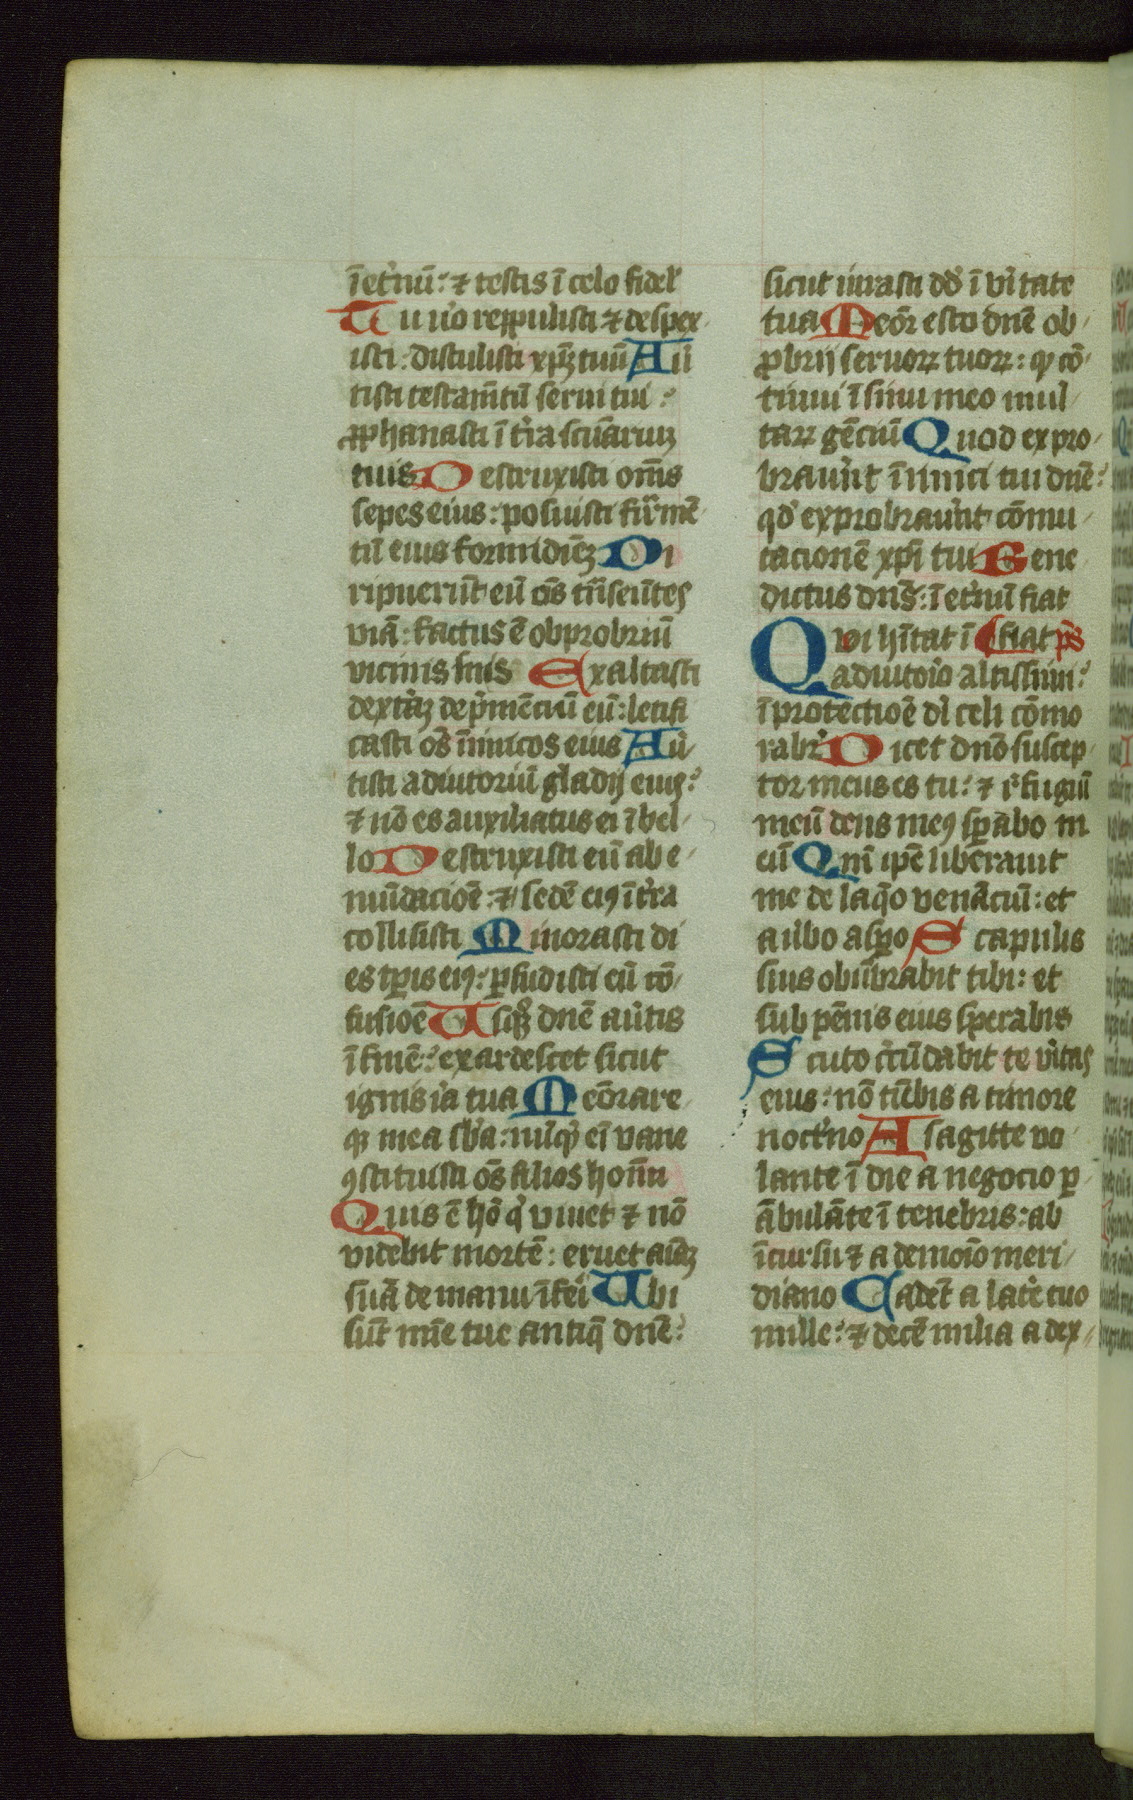 ī et͛nū: ⁊ testis ī celo fidel᷒
Tu u͛o reppulisti ⁊ despex-
isti: distulisti xp̄ꝫ tuū Au͛
tisti testam̄tū serui tui:
ꝓphanasti ī t͛ra scūariuꝫ
eius Destruxisti om̄s
sepes eius: posuisti fir͛mē
tū eius formidinēꝫ Di
ripuerūt eū om̄s tn̄seūtes
viā: factus ē obprobriū
vicinis suis Exaltasti
dext͛aꝫ dep͛mēciū eū: letifi
casti om̄s īimicos eius Au͛
tisti adiutoriū gladij eius:
⁊ nō es auxiliatus ei ī bel-
lo Destruxisti eū ab e-
mūdacioē: ⁊ sedē eiꝰ ī t͛ra
collisisti Minorasti di
es tp̄is eiꝰ: ꝑfudisti eū cō-
fusioē Usqꝫ dnē au͛tis
ī finē: exardescet sicut
ignis ira tua Memorare
q̄ mea sb̄a: nūqͥd em̄ vane
ꝯstituisti om̄s filios hoīm
Quis ē hō qͥ viuet ⁊ nō
videbit mortē: eruet aīaꝫ
suā de manu īferi Ubi
sūt mīe tue antiq̄ dnē:
sicut iurasti dd̄ ī v͛itate
tua Memor esto dnē ob-
ꝓbrij seruoꝝ tuoꝝ: qͥ cō-
tinui ī sinu meo mul-
taꝝ gēciū Quod expro-
brau͛nt īimici tui dnē:
qd̄ exprobrau͛nt cōmu-
tacionē xp̄i tui Bene
dictus dn̄s: ī et͛nū fiat
Qui h͛itat ī fiat ps̄
adiutorio altissimi:
ī protectioē di celi cōmo
rabr͛ Dicet dnō suscep-
tor meus es tu: ⁊ r͛fugiū
meū deus meꝰ sp̄abo in
eū Qm̄ ip̄e liberauit
me de laq̄o venāciū: et
a v͛bo asp̄o Scapulis
suis obūbrabit tibi: et
sub pēnis eius sperabis
Scuto circūdabit te v͛itas
eius: nō tīebis a timore
noct͛no A sagitte vo-
lante ī die a negocio ꝑ
ābulāte ī tenebris: ab
īcursu ⁊ a demoīo meri-
diano Cadēt a lat͛e tuo
mille: ⁊ decē milia a dex-